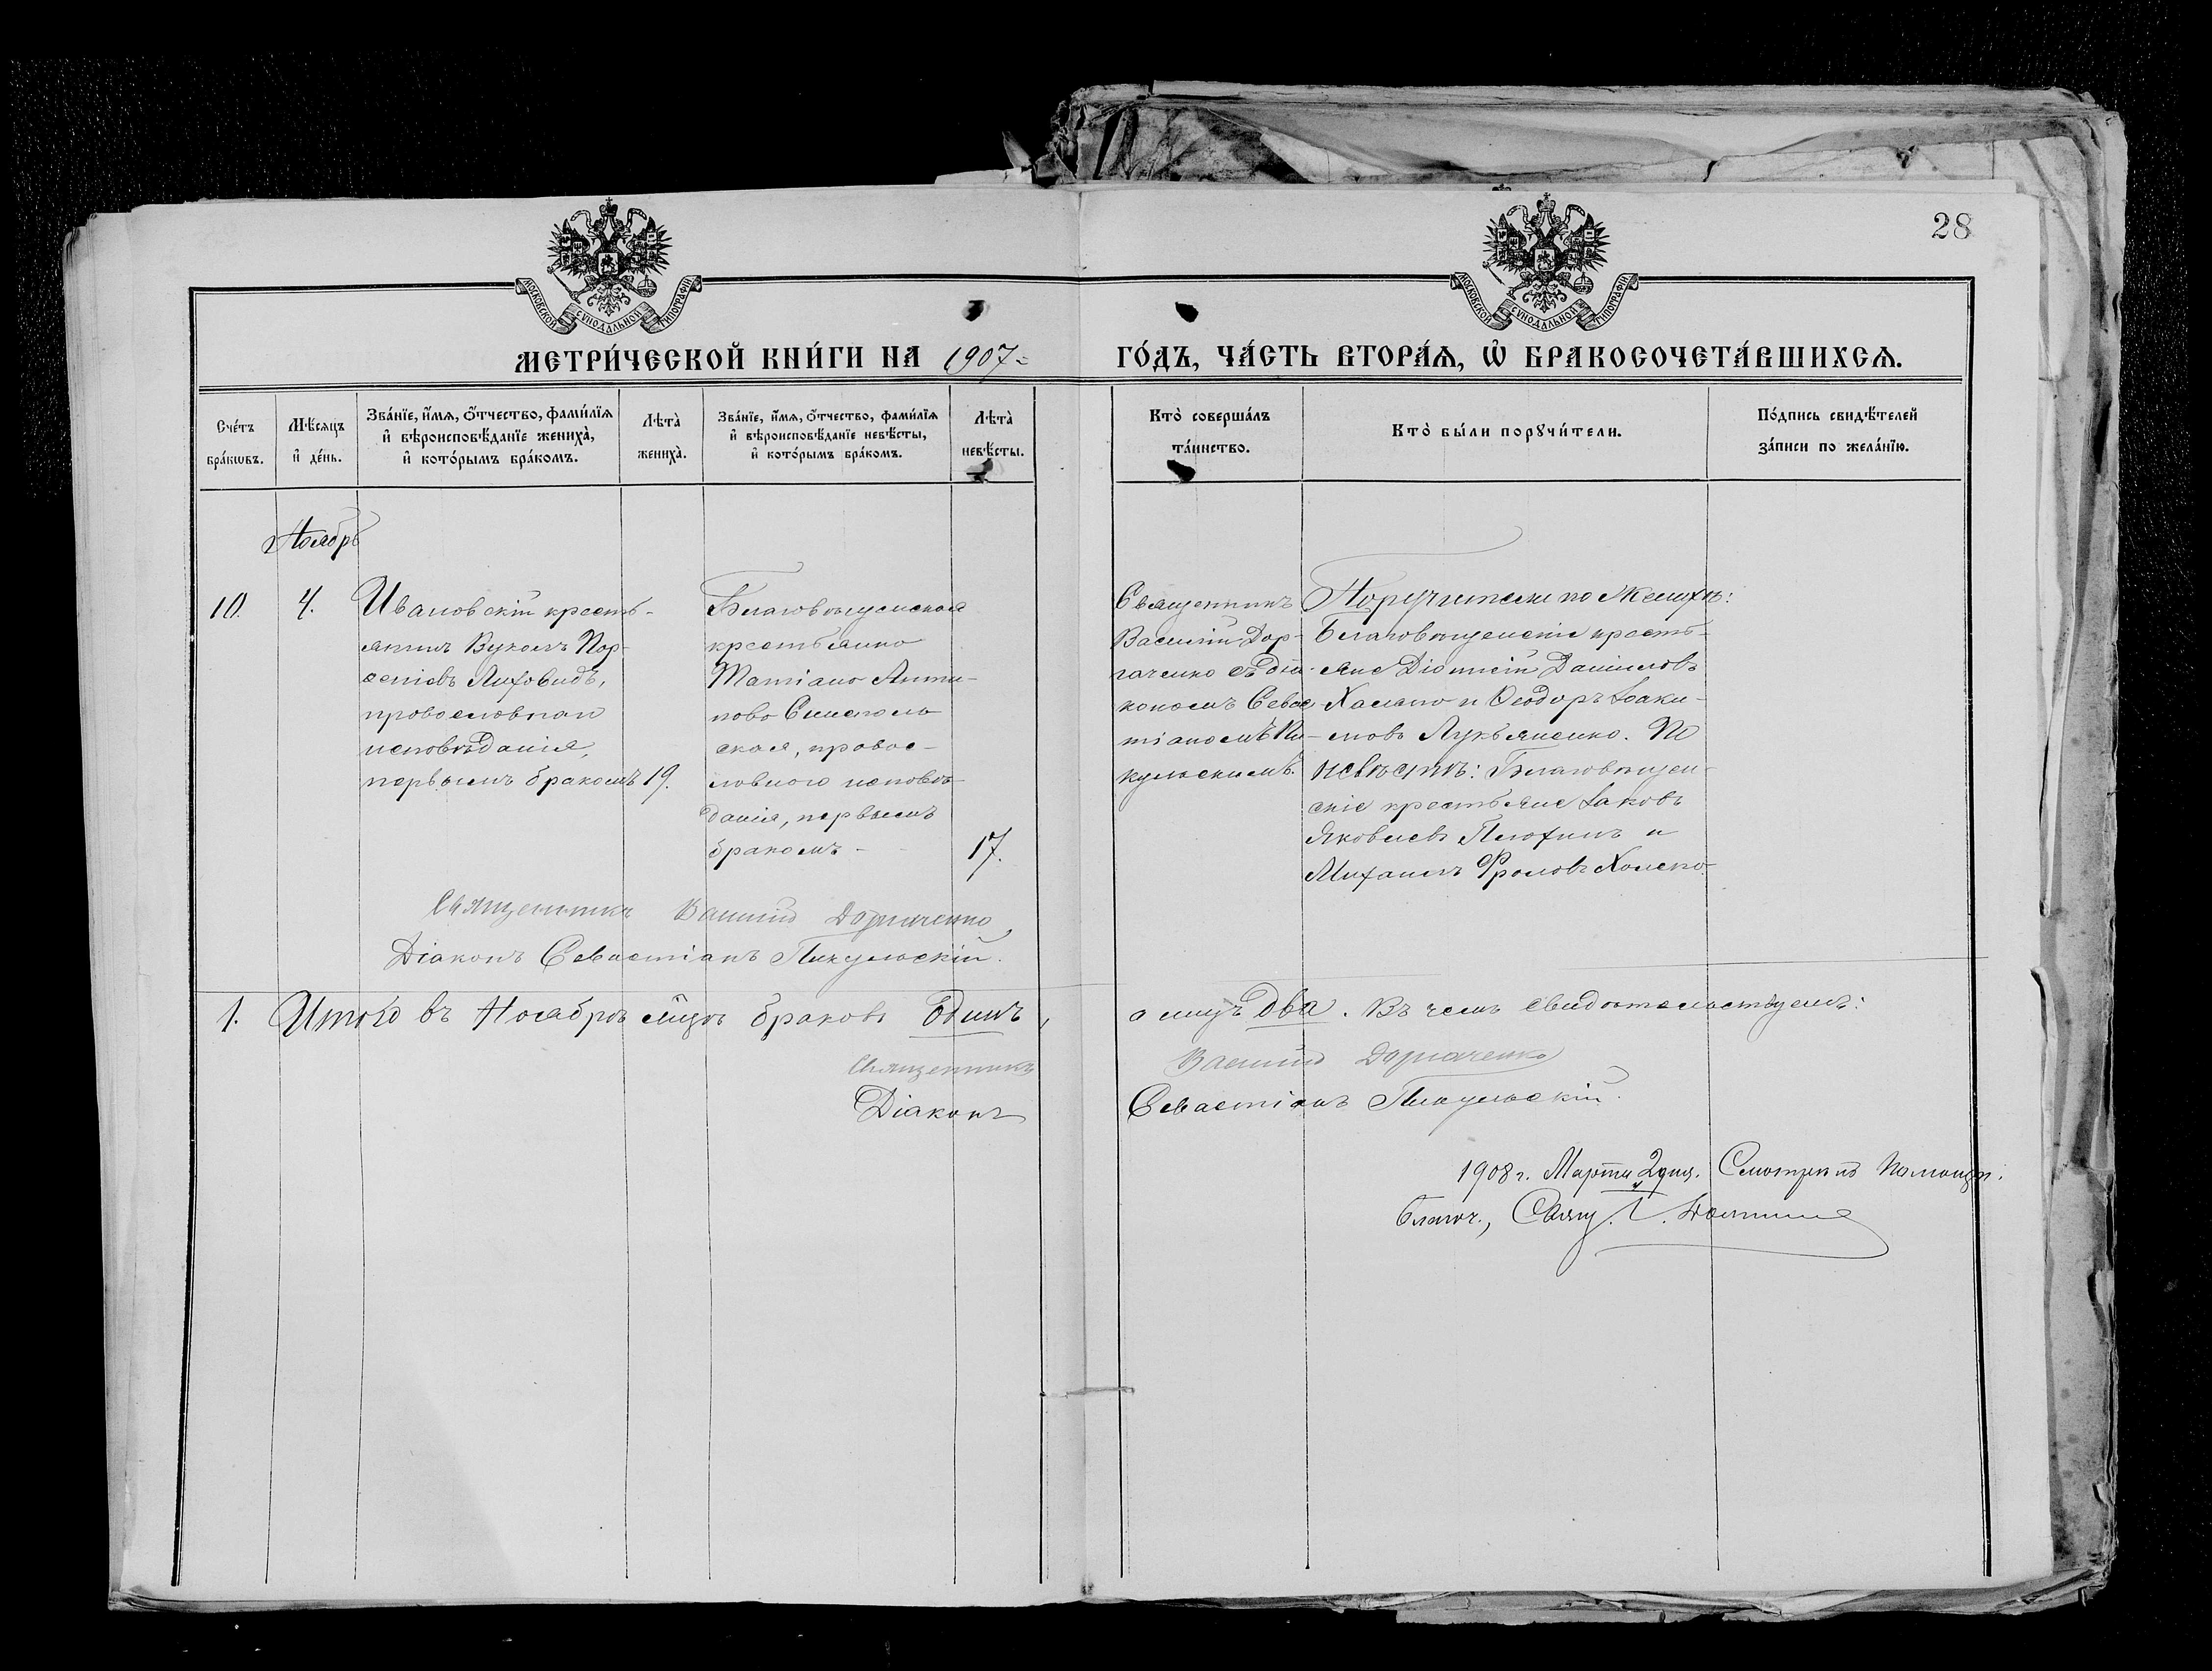 28
МОСКОВСКОЙ СУНОДАЛЬНОЙ ТИПОГРАФІИ
МОСКОВСКОЙ СУНОДАЛЬНОЙ ТИПОГРАФІИ
МЕТРИ́ЧЕСКОЙ КНИ́ГИ НА 1907
ГО́ДЪ, ЧА́СТЬ ВТОРА́Ѧ, Ѽ БРАКОСОЧЕТА́ВШИХСѦ.
Сче́тъ
бра́кѡвъ.
Мѣ́сѧцъ
и҆ де́нь.
Зва́нїе, и҆́мѧ, ѻ҆́тчество, фами́лїѧ
и҆ вѣроисповѣ́данїе жениха̀,
и҆ кото́рымъ бра́комъ.
Лѣта̀
жениха̀.
Зва́нїе, и҆́мѧ, ѻ҆́тчество, фами́лїѧ
и҆ вѣроисповѣ́данїе невѣ́сты,
и҆ кото́рымъ бра́комъ.
Лѣта̀
невѣ́сты.
Кто̀ соверша́лъ
та́инство.
Кто̀ бы́ли порꙋчи́тели.
По́дпись свидѣ́телей
за́писи по жела́нїю.
Ноябрь
10.
4.
Ивановскій кресть-
янинъ Вуколъ Пор-
феніевъ Лиховидъ,
православнаго
исповѣданія,
первымъ бракомъ
19.
Благовѣщенская
крестьянка
Татіана Анти-
пова Синель
ская, правос-
лавнаго исповѣ-
данія, первымъ
бракомъ -
17.
Священникъ
Василій Дор-
гаченко съ діа-
кономъ Севас-
тіаномъ Пи-
кульскимъ.
Поручители по Женихѣ:
Благовѣщенскіе кресть-
яне Діонисій Даниловъ
и Ѳеодоръ Іоаки-
мовъ Лукьяненко. По
невѣстѣ: Благовѣщен-
скіе крестьяне Іаковъ
Яковлевъ Плохинъ и
Михаилъ Фроловъ
Священникъ Василій Доргаченко
Діаконъ Севастіанъ Пикульскій.
1. Итого въ Ноябрѣ м-цѣ браковъ Одинъ,
а лицъ два. Въ чемъ свидѣтельствуемъ:
Священникъ Василій Доргаченко
Діаконъ Севастіанъ Пикульскій.
1908 г. Марта 2 дня. Смотрѣлъ Помощн.
Благоч., Свящ.